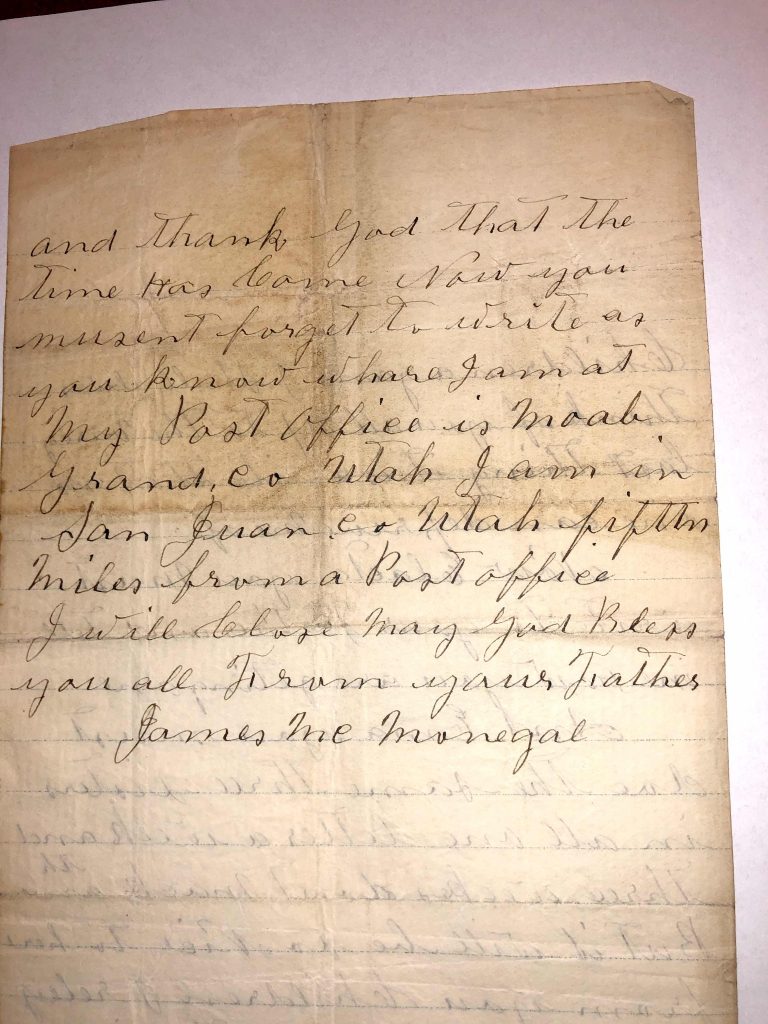 and thank God that the
time Has Come Now you
musent forget to write as
you know whare I am at
My Post Office is Moab
Grand, Co Utah I am in
San Juan, Co Utah fiftn
Miles from a Post office
I will Close May God Bless
you all From your Father
James Mc Monegal